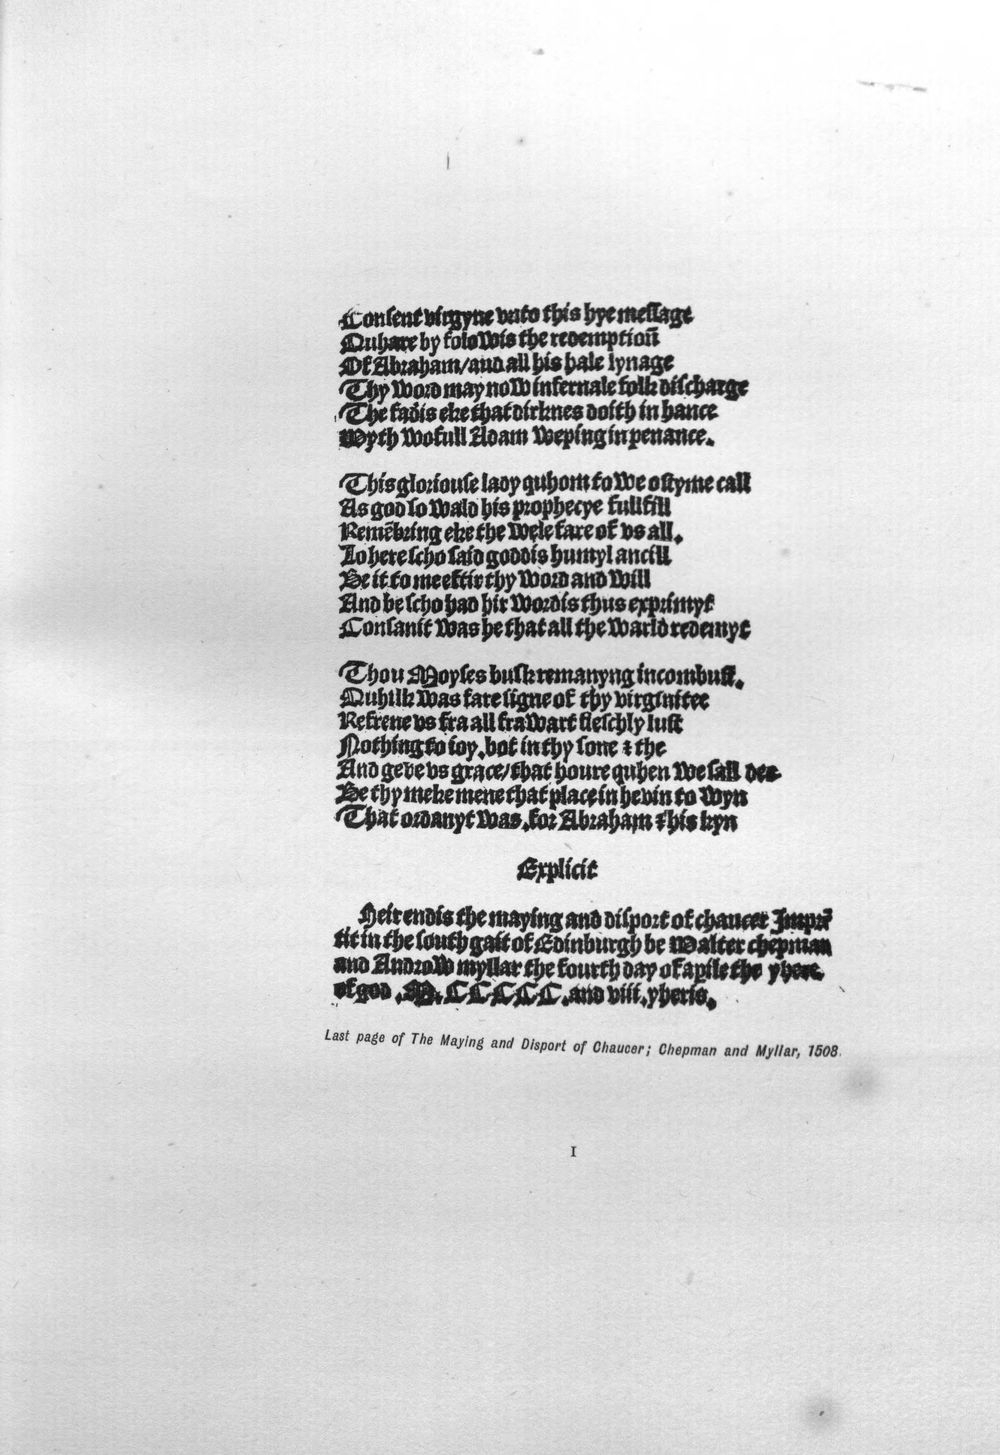 Consent virgyne vnto this hye message
Quhare by folowis the redemptioñ
Of Abraham/and all his hale lynage
Thy word may now infernale folk discharge
The fadis eke that dirknes doith in hance
Wyth wofull Adam weping in penance.
This gloriouse lady quhom to we oftyme call
As god so wald his prophecye fullfill
Remẽbring eke the wele fare of vs all.
Lo here scho said goddis humyl ancill
Be it to me eftir thy word and will
And be scho had hir wordis thus exprimyt
Consanit was he that all the warld redemyt
Thou Moyses busk remanyng incombust.
Quhilk was fare signe of thy virginitee
Refrene vs fra all frawart fleschly lust
Nothing to ioy.bot in thy sone ⁊ the
And geve vs grace/that houre quhen we sall dee
Be thy meke mene that place in hevin to wyn
That ordanyt was.for Abraham ⁊ his kyn
Explicit
Heir endis the maying and disport of chaucer Impr̃
tit in the south gait of Edinburgh be Walter chepman
and Androw myllar the fourth day of apile the yhere
of god .M.CCCCC.and viii.yheris.
Last page of The Maying and Disport of Chaucer; Chepman and Myllar, 1508.
I